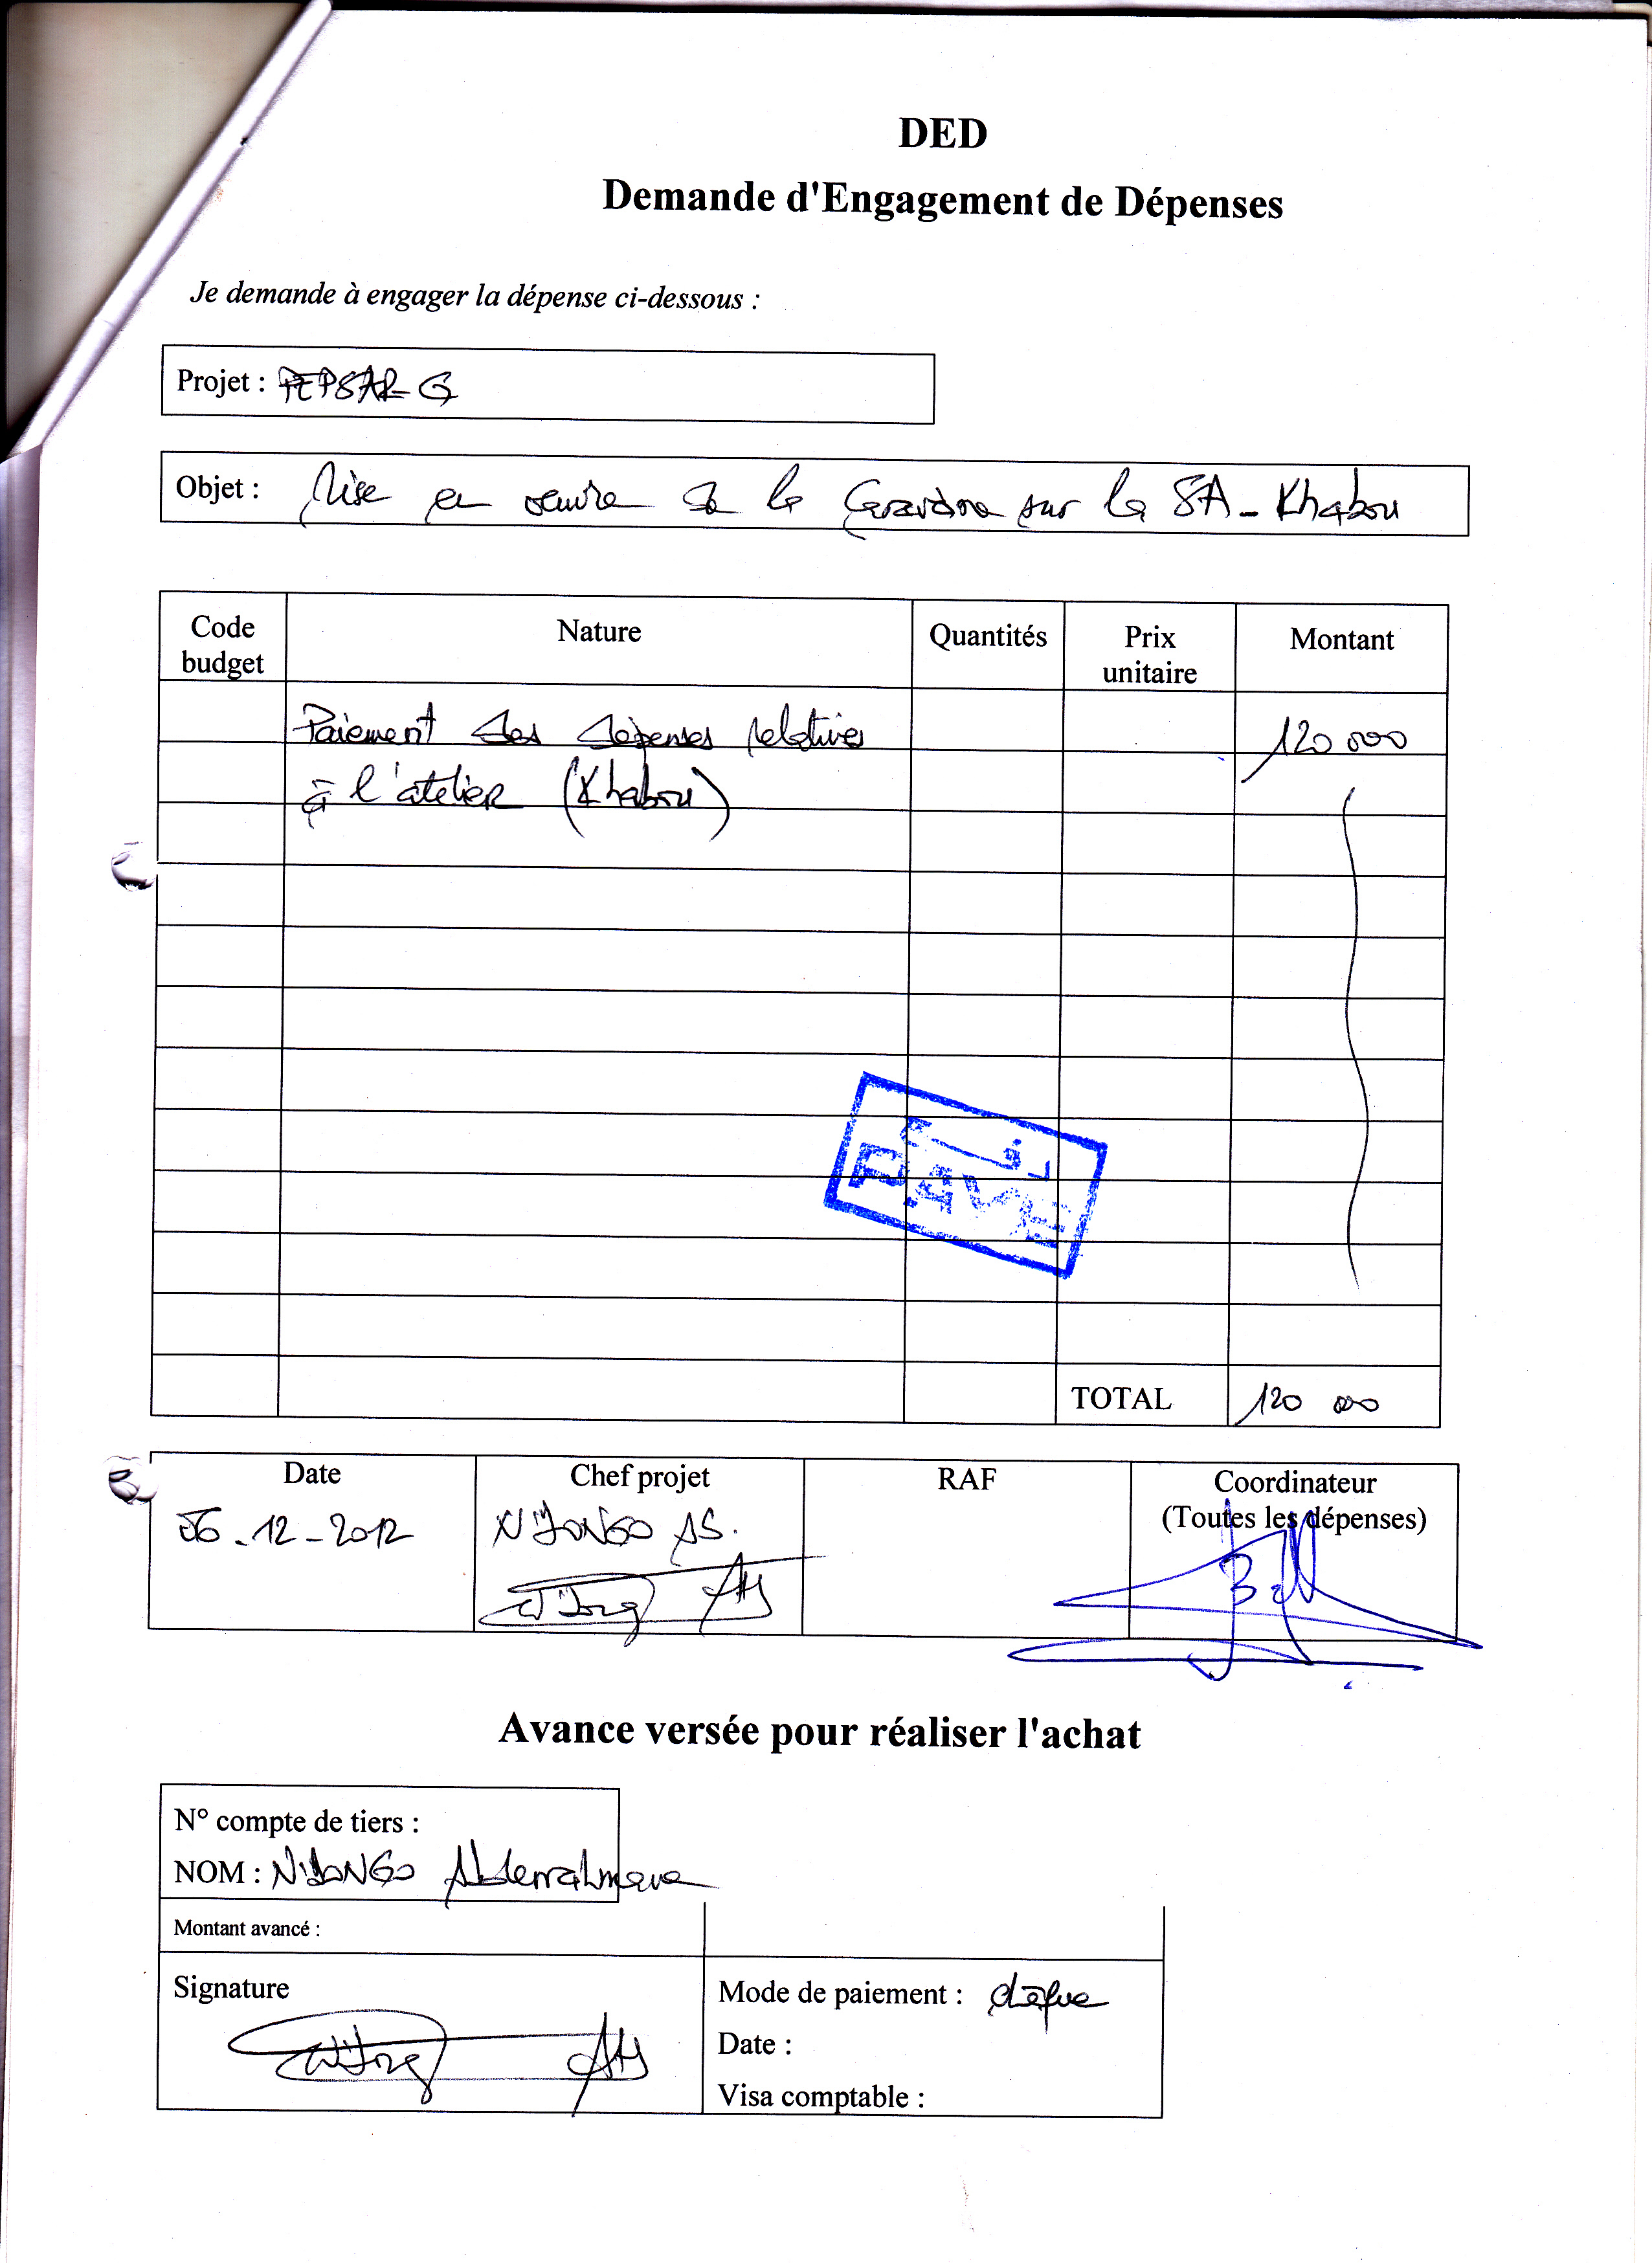 DED
Demande d'Engagement de Dépenses
Je demande à engager la dépense ci-dessous :
Projet : PEPSAR-G
Objet : Mise en œuvre de la sur la SA - Khabou
Code budget Nature Quantités Prix unitaire Montant
Paiement des dépenses relatives 120 000
à l'atelier (Khabou)
PAYE
TOTAL 120 000
Date Chef projet RAF Coordinateur
(Toutes les dépenses)
06-12-2012 N'DONGO AS.
Avance versée pour réaliser l'achat
N° compte de tiers :
NOM : N'DONGO Abderrahmane
Montant avancé :
Signature
Mode de paiement : chèque
Date :
Visa comptable :